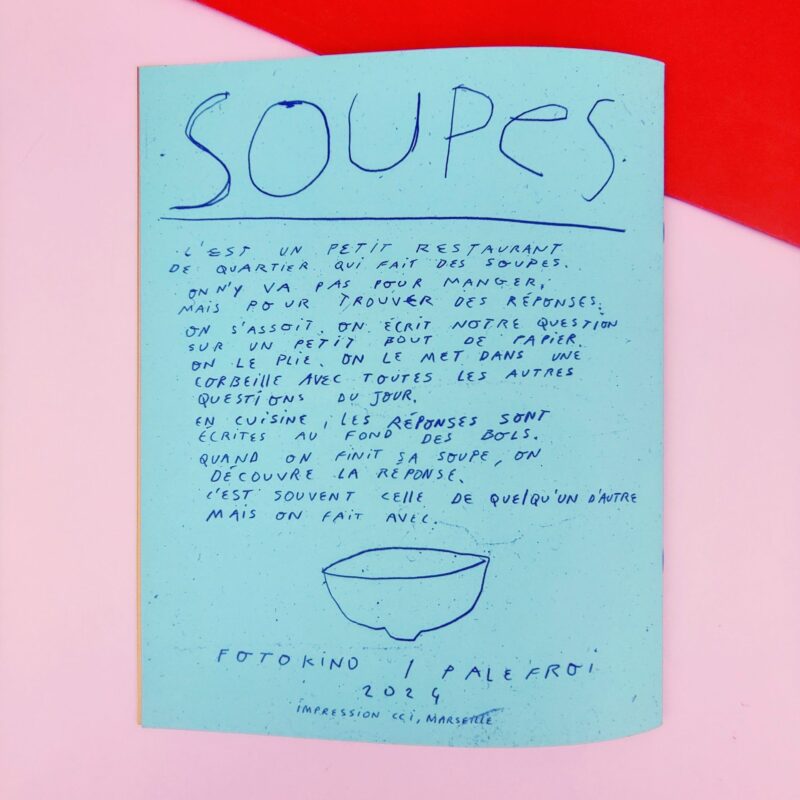 SOUPES
C'EST UN PETIT RESTAURANT
DE QUARTIER QUI FAIT DES SOUPES.
ON N'Y VA PAS POUR MANGER,
MAIS POUR TROUVER DES RÉPONSES.
ON S'ASSOIT. ON ÉCRIT NOTRE QUESTION
SUR UN PETIT BOUT DE PAPIER.
ON LE PLIE. ON LE MET DANS UNE
CORBEILLE AVEC TOUTES LES AUTRES
QUESTIONS DU JOUR.
EN CUISINE, LES RÉPONSES SONT
ÉCRITES AU FOND DES BOLS.
QUAND ON FINIT SA SOUPE, ON
DÉCOUVRE LA RÉPONSE.
C'EST SOUVENT CELLE DE QUELQU'UN D'AUTRE
MAIS ON FAIT AVEC.
FOTOKINO / PALEFROI
2024
IMPRESSION CCI, MARSEILLE